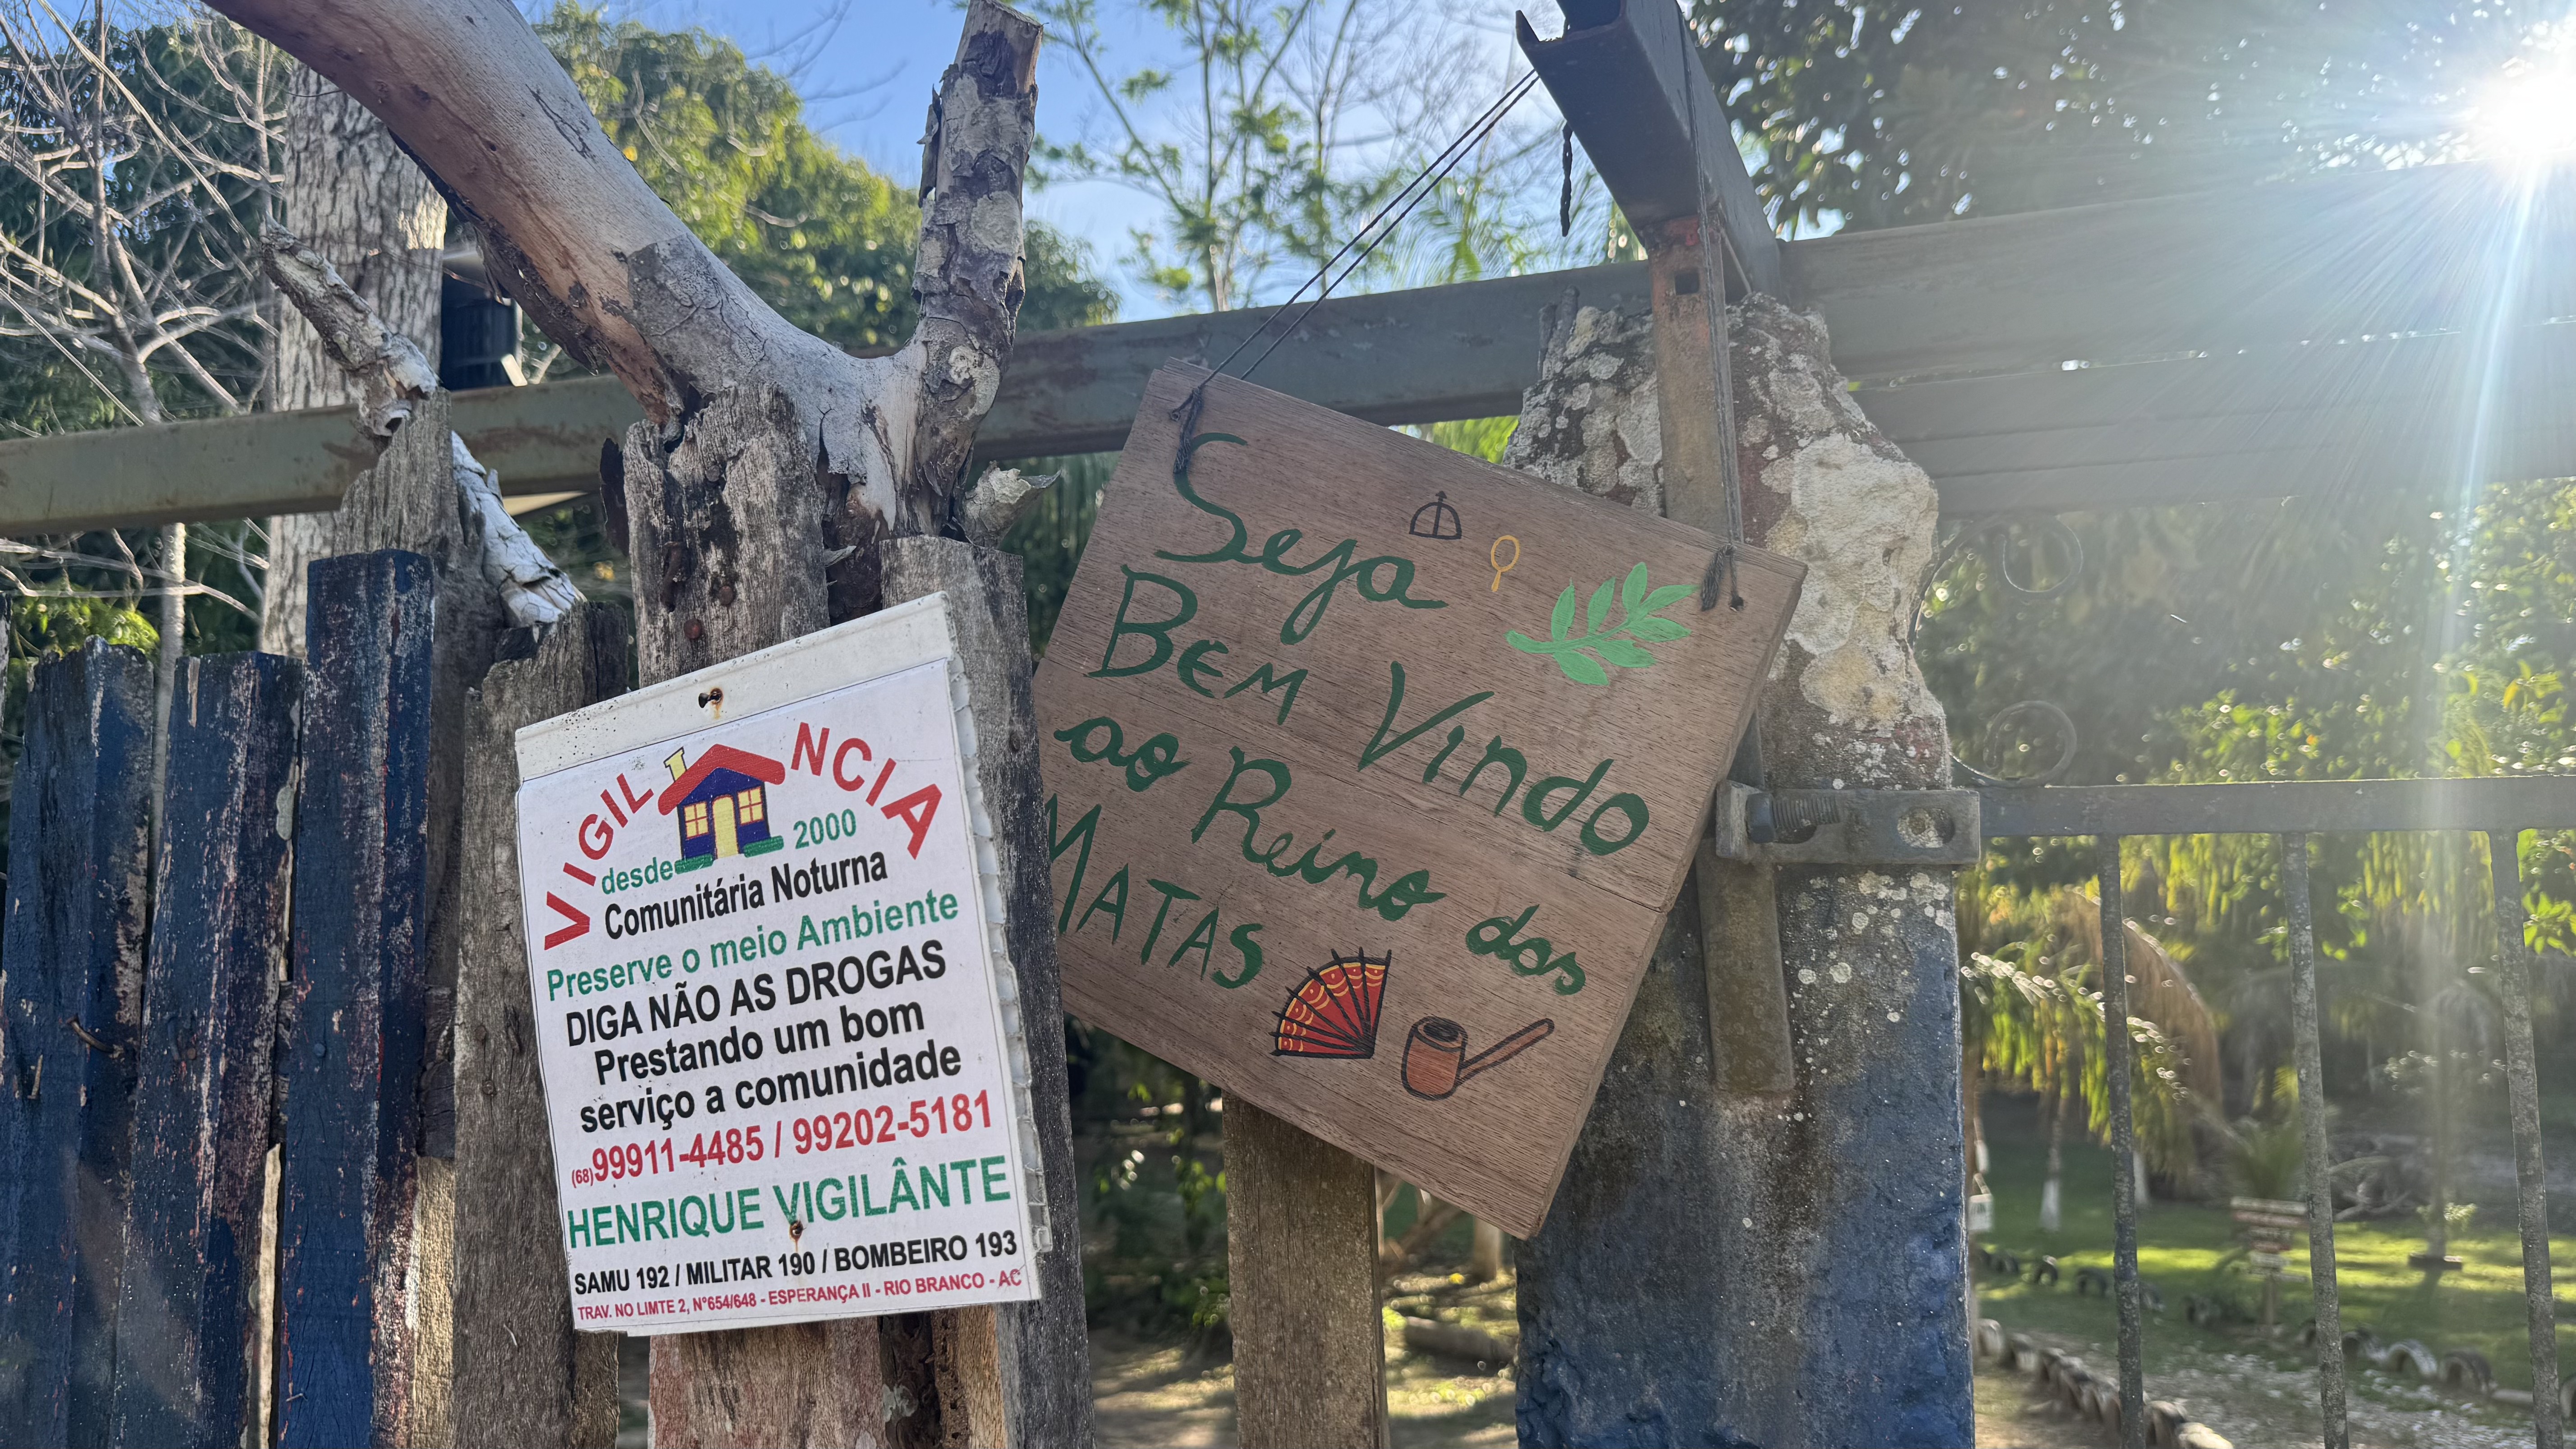 VIGILÂNCIA
desde 2000
Comunitária Noturna
Preserve o meio Ambiente
DIGA NÃO AS DROGAS
Prestando um bom
serviço a comunidade
(68)99911-4485 / 99202-5181
HENRIQUE VIGILÂNTE
SAMU 192 / MILITAR 190 / BOMBEIRO 193
TRAV. NO LIMTE 2, N°654/648 - ESPERANÇA II - RIO BRANCO - AC
Seja
BEM VINDO
ao Reino dos
MATAS